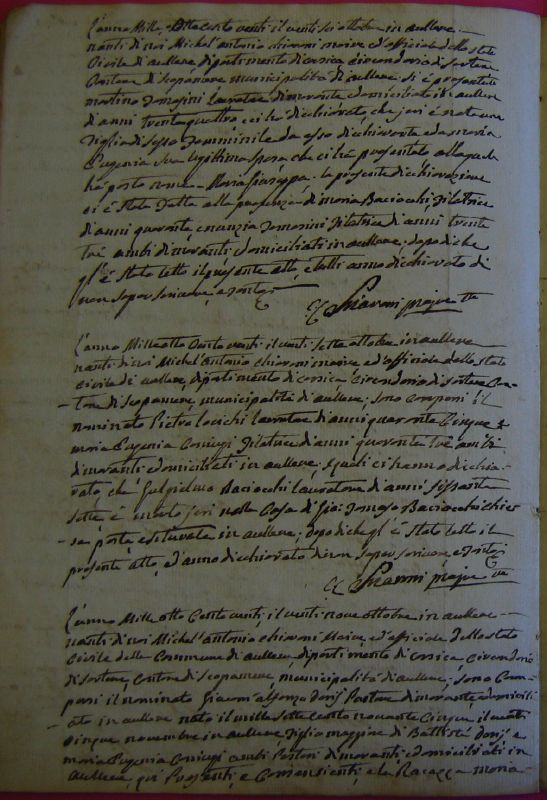 L'anno Mille otto Cento venti il venti sei ottobre in aullene
nanti di noi Michel'antonio chiaroni maire ed officiale dello stato
Civile di aullene dipartimento di corsica circondario di sartene
Cantone di scopamene municipalità di aullene si è presentato
martino Tomasini lauratore dimorante e domiciliato in aullene
di anni trenta quattro e ci ha dichiarato, che jeri è nata una
figlia di sesso femminile da esso dichiarante e da maria
Eugenia sua legittima sposa che ci ha presentato alla quale
ha posto nome Maria Giuseppa. la presente dichiarazione
ci è stata fatta alla presenza di maria Baciocchi filatrice
di anni quaranta e nunzia Tomasini filatrice di anni trenta
tre ambi dimoranti e domiciliati in aullene; dopo di che
gl'è stato letto il presente atto e tutti anno dichiarato di
non saper scrivere, e
Chiaroni maire
L'anno Mille otto Cento venti il venti sette ottobre in aullene
nanti di noi Michel'Antonio chiaroni maire ed officiale dello stato
civile di aullene, dipartimento di corsica, circondario di sartene Can-
tone di scopamene, municipalità di aullene, sono comparsi il
nominato Pietro lauratore di anni quaranta Cinque e
maria Eugenia filatrice di anni quaranta tre ambi
dimoranti e domiciliati in aullene, i quali ci hanno dichia-
rato, che Gulgielmo Baciocchi lauratore di anni sessanta
sette è morto jeri nella Casa di Gio: Tomaso Baciocchi
sa posta e situata in aullene; dopo di che gl'è stato letto il
presente atto, ed anno dichiarato di non saper scrivere e
Chiaroni maire
L'anno Mille otto Cento venti, il venti nove ottobre in aullene
nanti di noi Michel'antonio chiaroni Maire ed officiale dello stato
Civile della Commune di aullene, dipartimento di corsica, circondario
di sartene, Cantone di scopamene, municipalità di aullene, sono Com-
parsi il nominato Giacom'alfonzo Pastore dimorante, e domicili
ato in aullene nato il mille sette cento novanta Cinque il venti
Cinque novembre in aullene figlio maggiore di Battista e
maria Eugenia ambi Pastori dimoranti, e domiciliati in
aullene, qui Presenti, e Consensienti, e la Ragazza maria